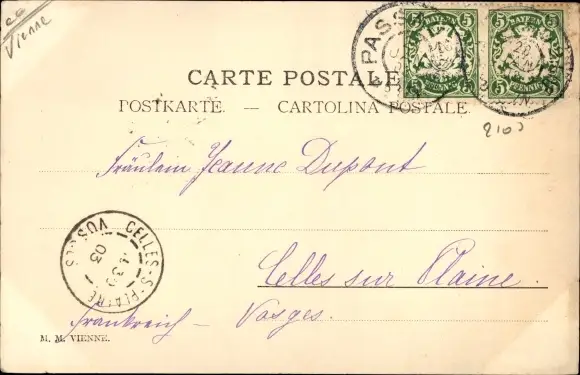 Vienne
BAYERN 5 5 PFENNIG
BAYERN 5 5 PFENNIG
PASSAU
CARTE POSTALE
POSTKARTE. — CARTOLINA POSTALE.
2103
Fräulein Jeanne Dupont
Celles sur Plaine.
Frankreich – Vosges.
CELLES-S-PLAINE VOSGES
03
M. M. VIENNE.